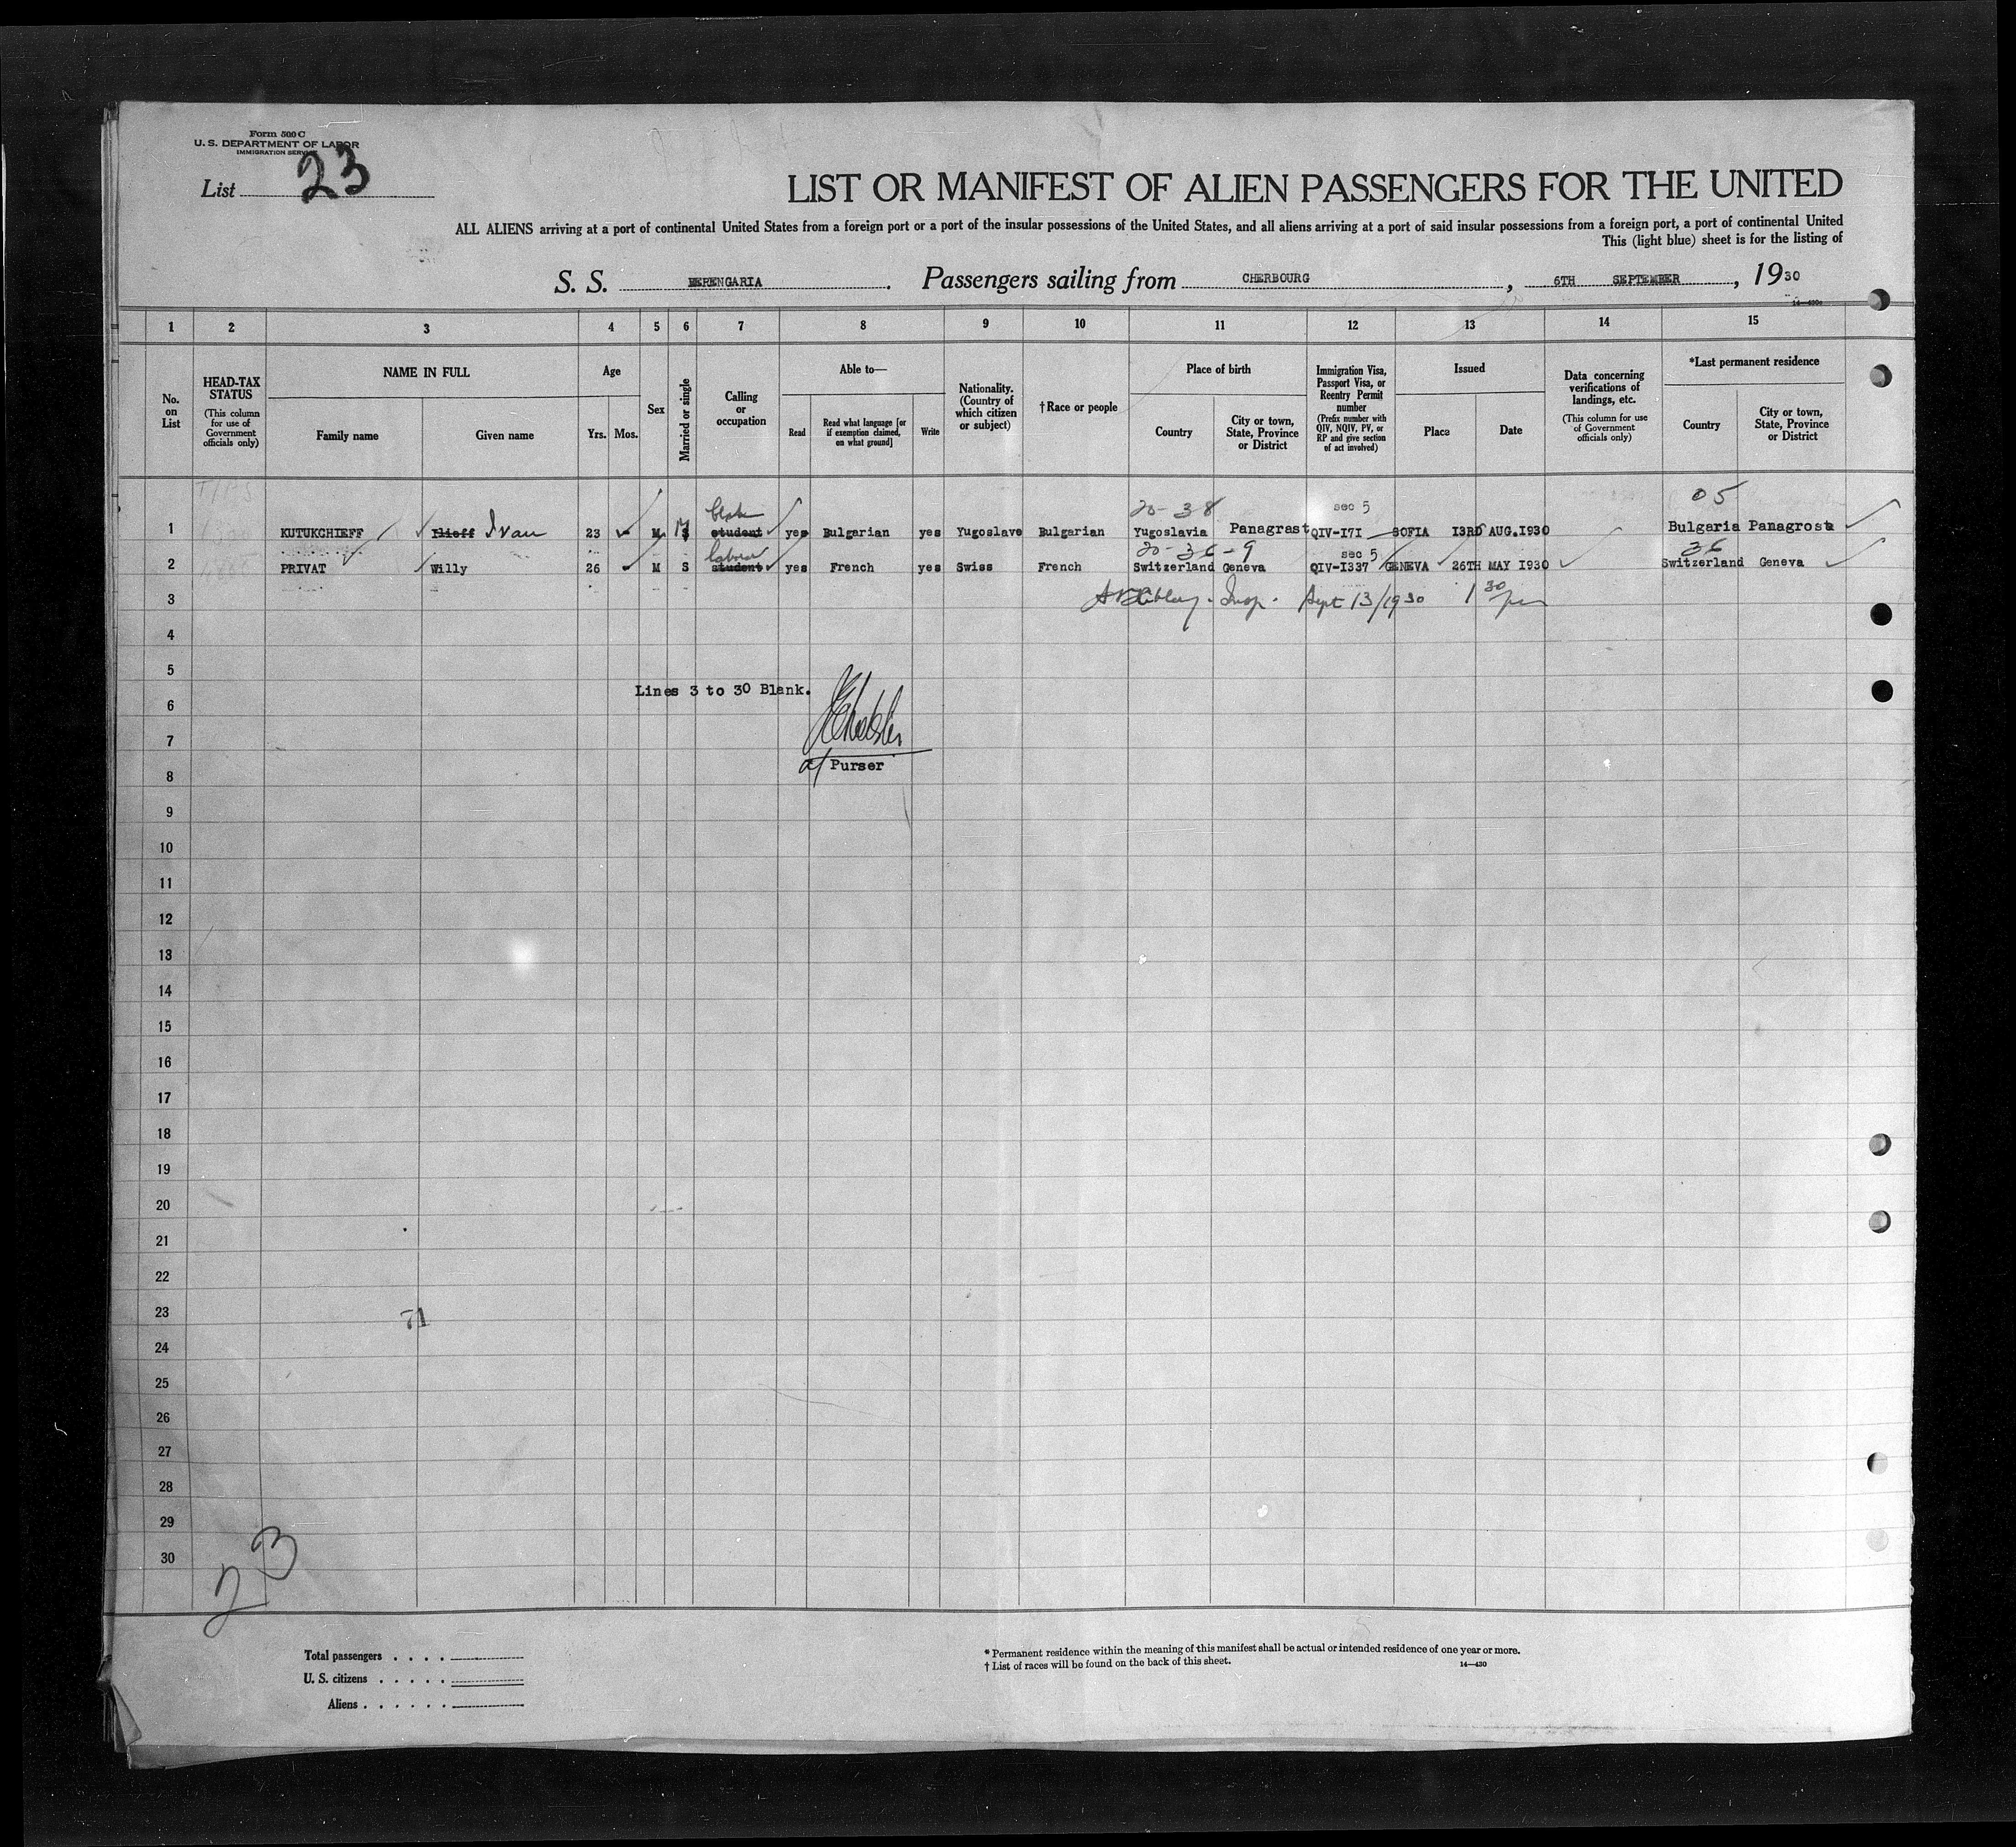 Form 500 C
U. S. DEPARTMENT OF LABOR
IMMIGRATION SERVICE
List 23
LIST OR MANIFEST OF ALIEN PASSENGERS FOR THE UNITED
ALL ALIENS arriving at a port of continental United States from a foreign port or a port of the insular possessions of the United States, and all aliens arriving at a port of said insular possessions from a foreign port, a port of continental United
This (light blue) sheet is for the listing of
S. S. BERENGARIA. Passengers sailing from CHERBOURG, 6TH SEPTEMBER, 1930
1 2 3 4 5 6 7 8 9 10 11 12 13 14 15
No. on List
HEAD-TAX STATUS
(This column for use of Government officials only)
NAME IN FULL
Family name
Given name
Age
Yrs. Mos.
Sex
Married or single
Calling or occupation
Able to—
Read
Read what language [or if exemption claimed, on what ground]
Write
Nationality. (Country of which citizen or subject)
†Race or people
Place of birth
Country
City or town, State, Province or District
Immigration Visa, Passport Visa, or Reentry Permit number
(Prefix number with QIV, NQIV, PV, or RP and give section of act involved)
Issued
Place
Date
Data concerning verifications of landings, etc.
(This column for use of Government officials only)
*Last permanent residence
Country
City or town, State, Province or District
20-38 sec 5 05
1 KUTUKCHIEFF Ilieff Ivan 23 M S student yes Bulgarian yes Yugoslave Bulgarian Yugoslavia Panagrast QIV-I7I SOFIA I3RD AUG.I930 Bulgaria Panagrosta
labour 20-36-9 sec 5 36
2 PRIVAT Willy 26 M S student yes French yes Swiss French Switzerland Geneva QIV-I337 GENEVA 26TH MAY I930 Switzerland Geneva
3 Insp. Sept 13/1930 1 30 pm
4
5
Lines 3 to 30 Blank.
6
7
Purser
8
9
10
11
12
13
14
15
16
17
18
19
20
21
22
23
71
24
25
26
27
28
29
30
23
Total passengers
U. S. citizens
Aliens
* Permanent residence within the meaning of this manifest shall be actual or intended residence of one year or more.
† List of races will be found on the back of this sheet.
14—430